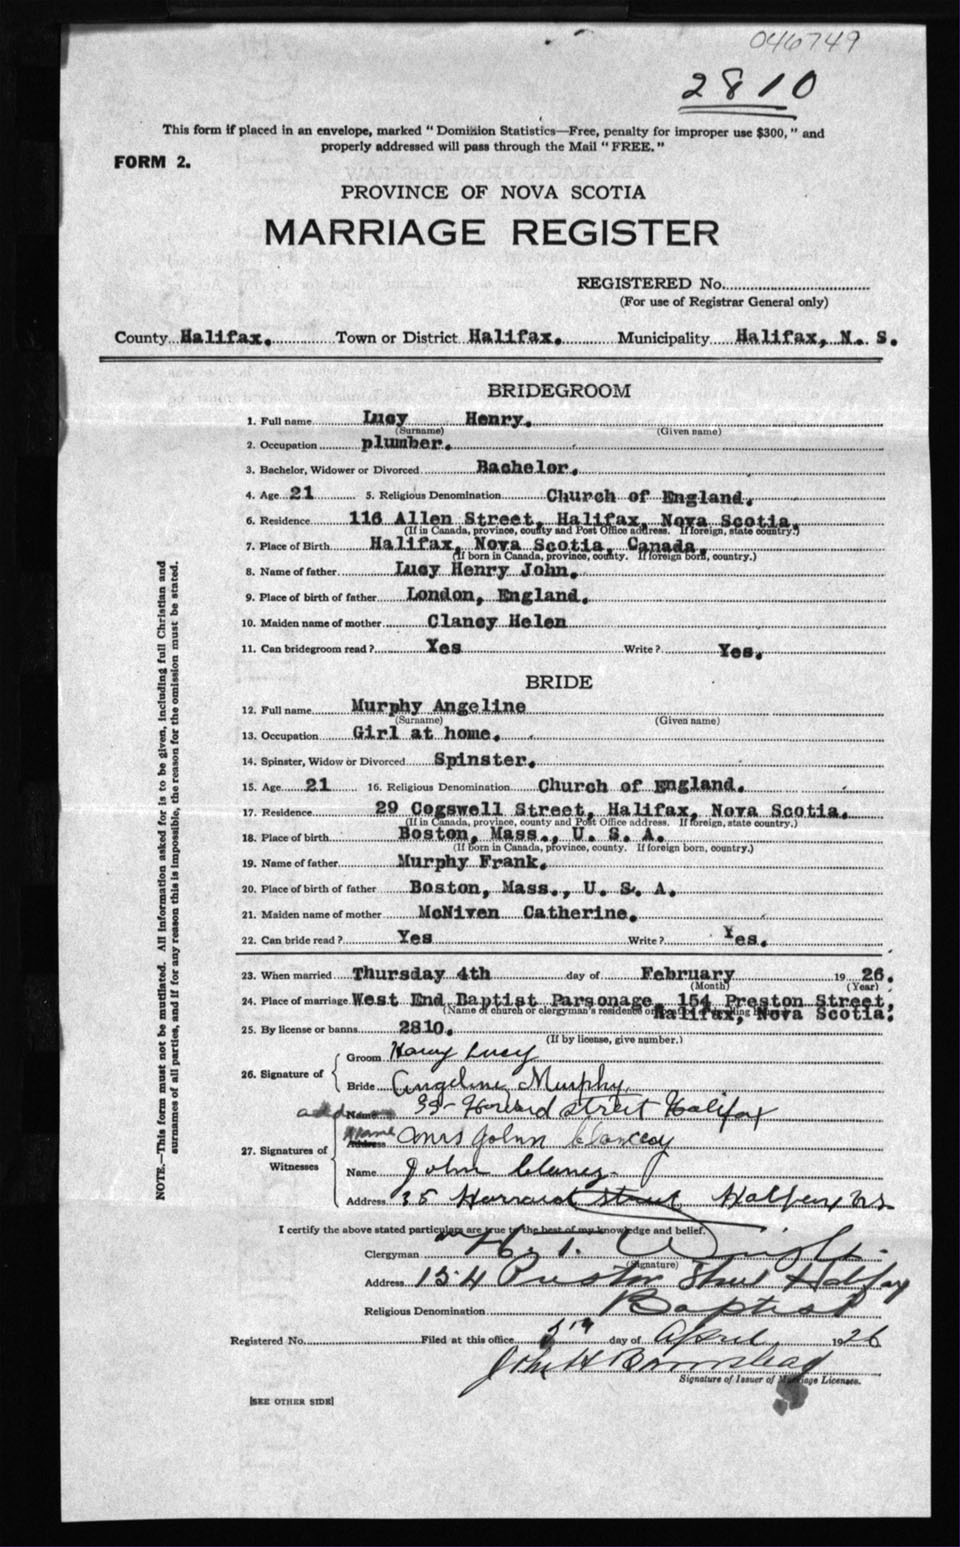 046749
2810
This form if placed in an envelope, marked "Dominion Statistics—Free, penalty for improper use $300," and
properly addressed will pass through the Mail "FREE."
FORM 2.
PROVINCE OF NOVA SCOTIA
MARRIAGE REGISTER
REGISTERED No.
(For use of Registrar General only)
County Halifax. Town or District Halifax. Municipality Halifax, N. S.
BRIDEGROOM
1. Full name Lucy Henry.
(Surname) (Given name)
2. Occupation plumber.
3. Bachelor, Widower or Divorced Bachelor.
4. Age 21 5. Religious Denomination Church of England.
6. Residence 116 Allen Street, Halifax, Nova Scotia.
(If in Canada, province, county and Post Office address. If foreign, state country.)
7. Place of Birth Halifax, Nova Scotia, Canada.
(If born in Canada, province, county. If foreign born, country.)
8. Name of father Lucy Henry John.
9. Place of birth of father London, England.
10. Maiden name of mother Clancy Helen
11. Can bridegroom read? Yes Write? Yes.
BRIDE
12. Full name Murphy Angeline
(Surname) (Given name)
13. Occupation Girl at home.
14. Spinster, Widow or Divorced Spinster.
15. Age 21 16. Religious Denomination Church of England.
17. Residence 29 Cogswell Street, Halifax, Nova Scotia.
(If in Canada, province, county and Post Office address. If foreign, state country.)
18. Place of birth Boston, Mass., U. S. A.
(If born in Canada, province, county. If foreign born, country.)
19. Name of father Murphy Frank.
20. Place of birth of father Boston, Mass., U. S. A.
21. Maiden name of mother McNiven Catherine.
22. Can bride read? Yes Write? Yes.
23. When married Thursday 4th day of February 1926.
(Month) (Year)
24. Place of marriage West End Baptist Parsonage, 154 Preston Street,
(Name of church or clergyman's residence or Halifax, Nova Scotia.
25. By license or banns 2810.
(If by license, give number.)
26. Signature of
Groom Harry Lucy
Bride Angeline Murphy
add Name Street Halifax
27. Signatures of Witnesses
Name Address Mrs John Clancey
Name John Clancy
Address 35 Street Halifax NS
I certify the above stated particulars are true to the best of my knowledge and belief.
Clergyman Wright
(Signature)
Address 154 Preston Street Halifax
Religious Denomination Baptist
Registered No. Filed at this office 5th day of April 1926
John H Barnstead
Signature of Issuer of Marriage Licenses.
[SEE OTHER SIDE]
NOTE.—This form must not be mutilated. All information asked for is to be given, including full Christian and
surnames of all parties, and if for any reason this is impossible, the reason for the omission must be stated.